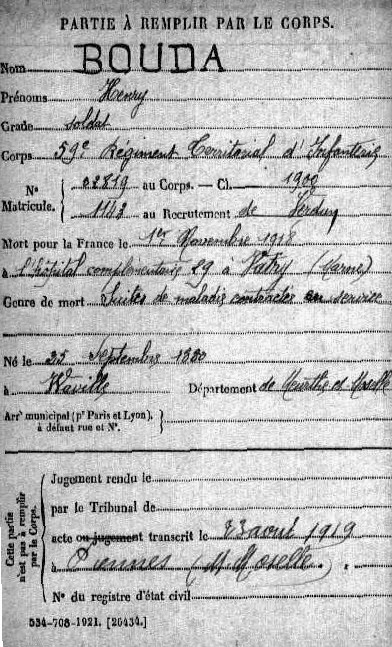 PARTIE À REMPLIR PAR LE CORPS.
Nom BOUDA
Prénoms Henry
Grade soldat
Corps 59e Régiment Territorial d'Infanterie
N° Matricule. { 22819 au Corps. — Cl. 1900
1143 au Recrutement de Verdun
Mort pour la France le 1er Novembre 1918
à l'hôpital complémentaire 29 à Vatry (Marne)
Genre de mort Suites de maladie contractée en service
Né le 25 Septembre 1880
à Waville Département de Meurthe et Moselle
Arrt municipal (pr Paris et Lyon), à défaut rue et N°.
Cette partie n'est pas à remplir par le Corps.
Jugement rendu le
par le Tribunal de
acte ou jugement transcrit le 23 août 1919
à Piennes (M. Moselle)
N° du registre d'état civil
534-708-1921. [26434.]